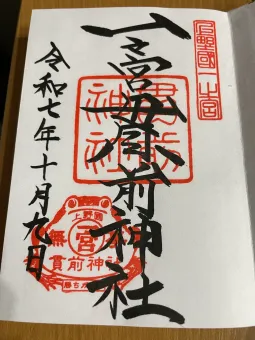 上野國一之宮
一之宮貫前神社
貫前神社
令和七年十月九日
上野國
貫前神社